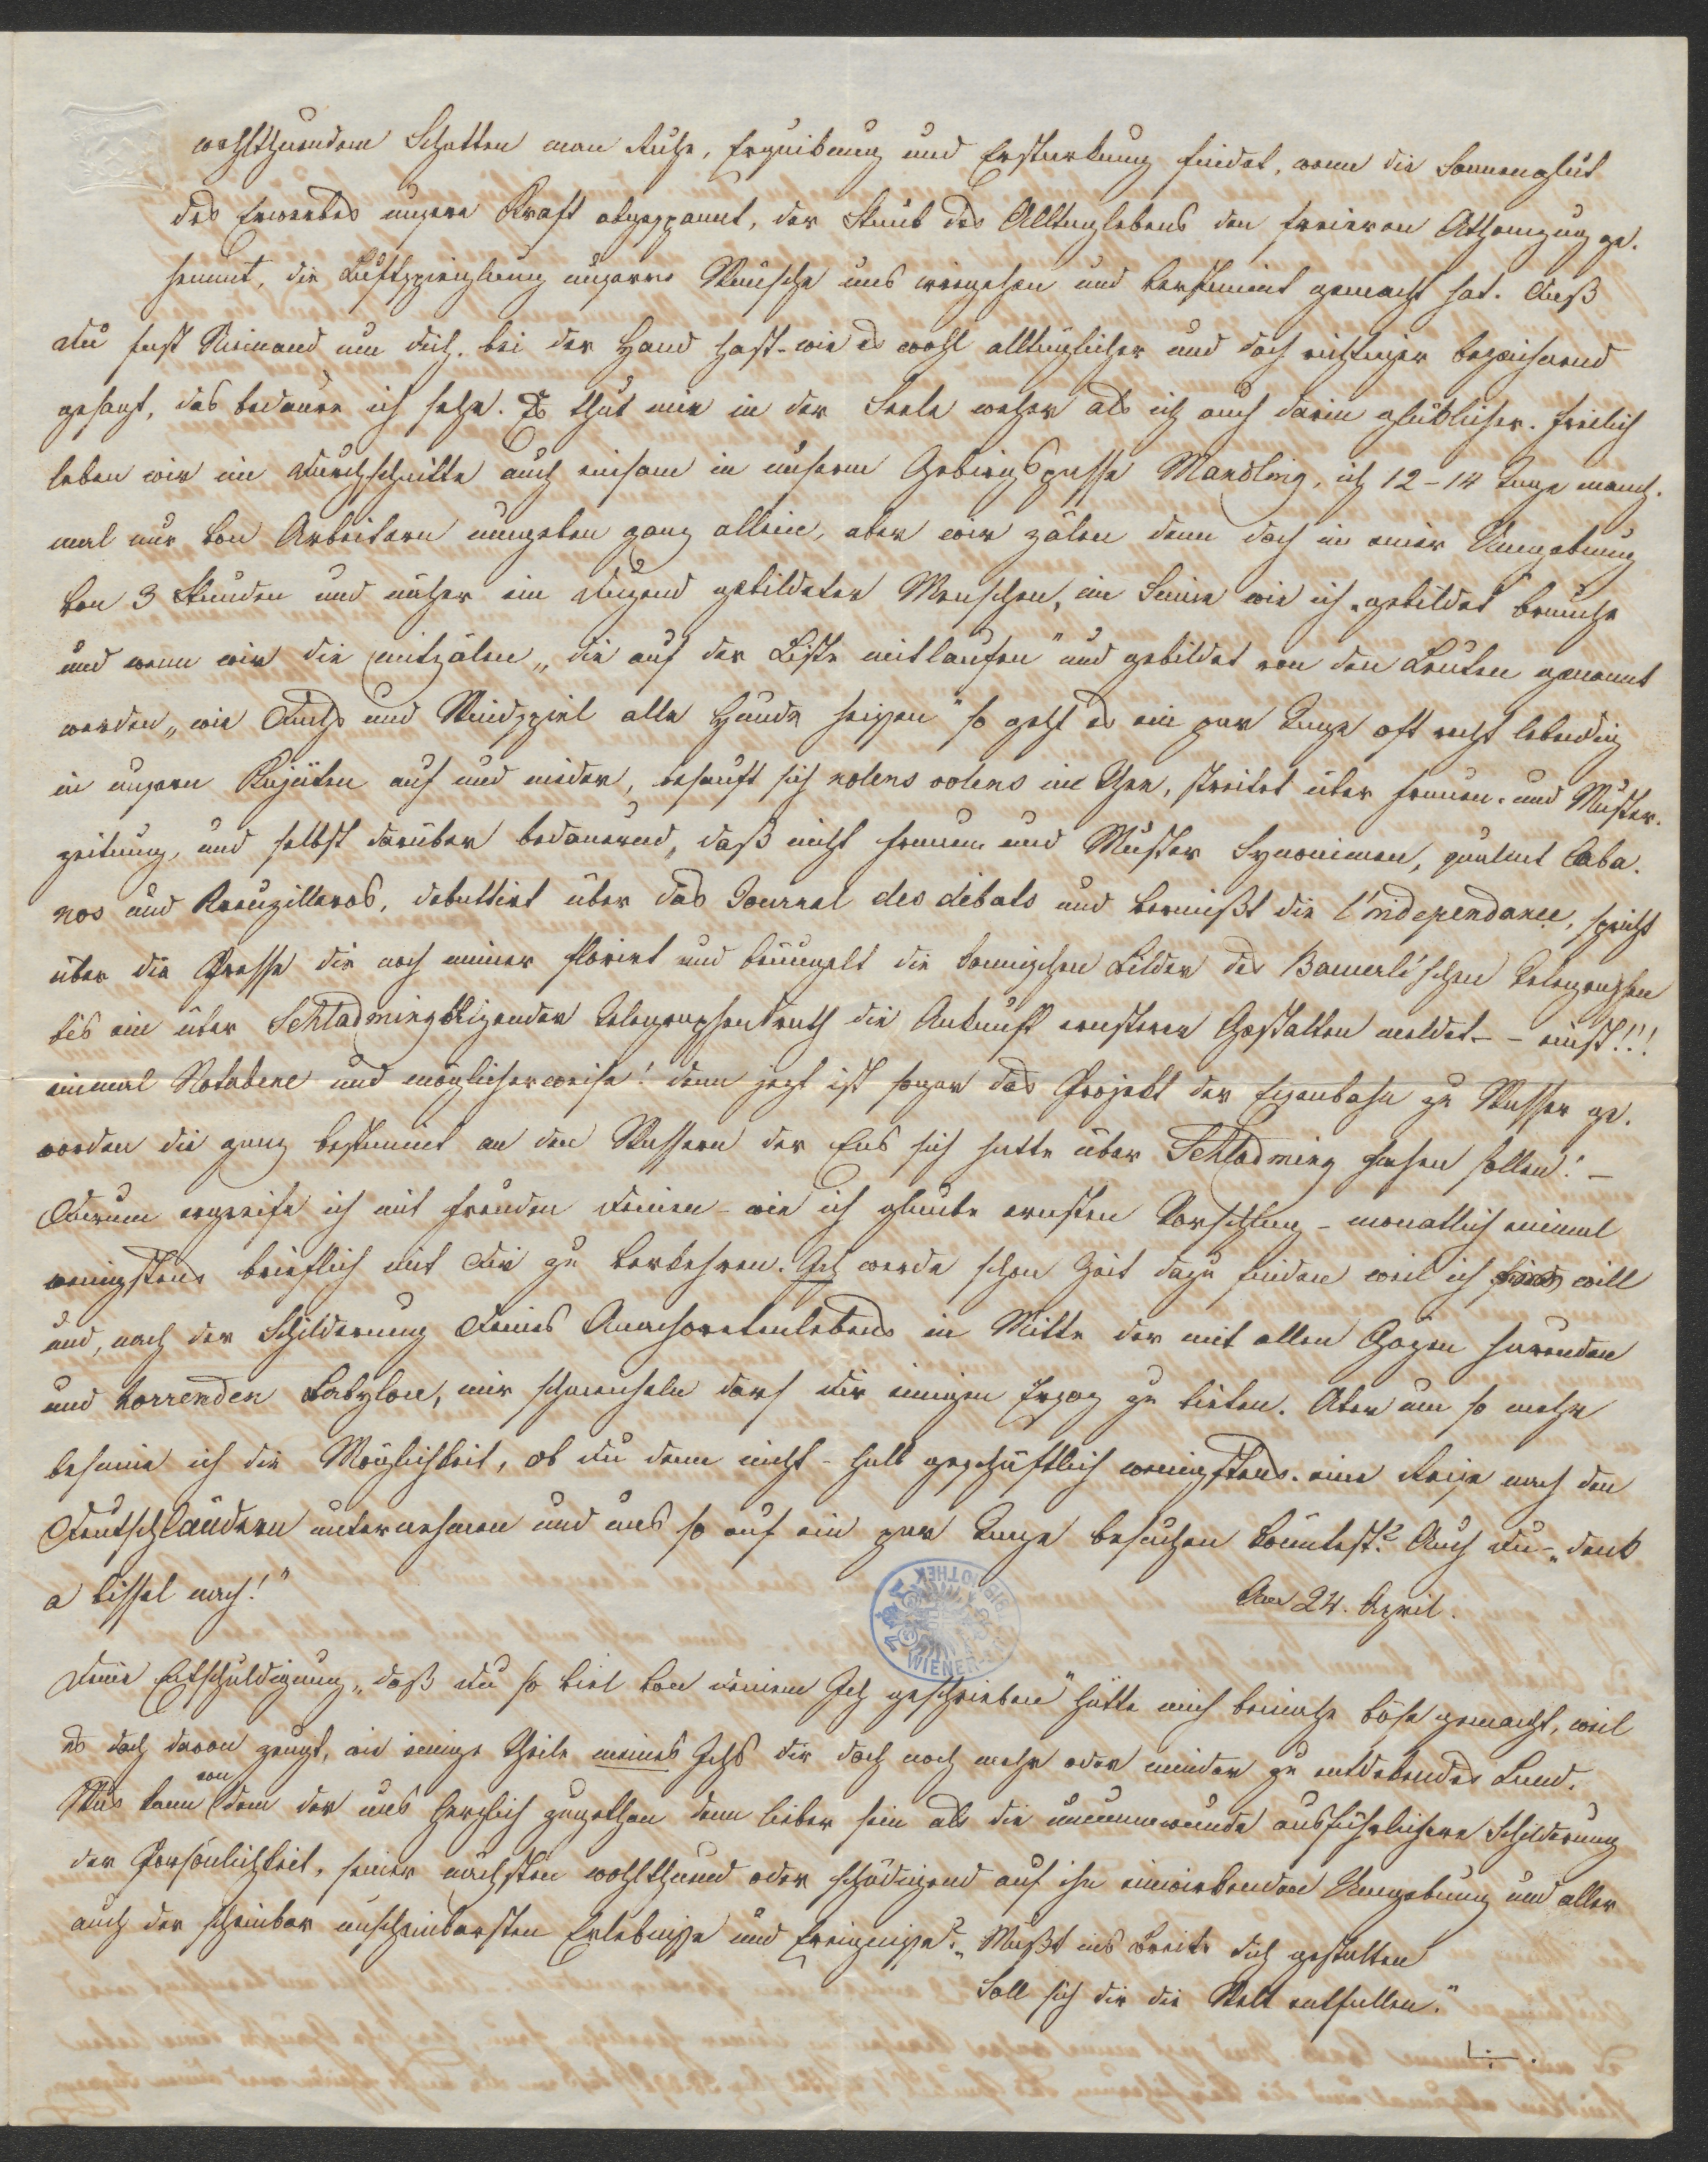 wohlthuendem Schatten man Ruhe, Erquickung und Erstarkung findet, wenn die Sonnenglut
des Erwerbes unsere Kraft abgespannt, der Staub des Alltaglebens den freieren Athemzug ge-
hemmt, die Luftspieglung unserer Wünsche uns irregehen und verstimmt gemacht hat. Daß
Du fast Niemand um dich - bei der Hand hast - wie es wohl alltäglicher und doch richtiger bezeichnend
gesagt, das bedaure ich sehr. Es thut mir in der Seele weher als ich auch darin glücklicher. Freilich
leben wir im Durchschnitte auch einsam in unserm Gebirgspasse Mandling, ich 12-14 Tage manch-
mal nur von Arbeitern umgeben ganz allein, aber wir zälen denn doch in einer Umgebung
von 3 Stunden und näher ein Duzend gebildeter Menschen, im Sinne wie ich „gebildet" brauche
und wenn wir die mitzälen „die auf der Liste mitlaufen" und gebildet von den Leuten genannt
werden „wie Fuchs und Windspiel alle Hunde heißen" so geht es ein par Tage oft recht lebendig
in unsern Kajüten auf und nieder, besauft sich nolens volens in Thee, streitet über Frauen- und Muster-
zeitung, und selbst darüber bedauernd, daß nicht Frauen und Muster Synonimen, qualmt Caba-
nos und Kreuzilleros, debattirt über das Journal des débats und vermißt die l'independance, spricht
über die Presse die noch immer florirt und beäugelt die komischen Bilder des Bäuerle'schen Telegraphen
bis ein über Schladming steigender Telegraphendrath die Ankunft ernsterer Gestalten meldet - - einst!!!
einmal Notabene und möglicherweise! denn jezt ist sogar das Projekt der Eisenbahn zu Wasser ge-
worden die ganz bestimmt an den Wassern der Ens sich hätte über Schladming ziehen sollen! -
Darum ergreife ich mit Freuden Deinen - wie ich glaube ernsten Vorschlag - monatlich einmal
wenigstens brieflich mit Dir zu verkehren. Ich werde schon Zeit dazu finden weil ich will
und, nach der Schilderung Deines Anachoretenlebens in Mitte der mit allen Gözen hurenden
und Babylon, mir schmeicheln darf dir einigen Ersaz zu bieten. Aber um so mehr
besinne ich die Möglichkeit, ob du denn nicht - halb geschäftlich wenigstens - eine Reise nach den
Deutschländern unternehmen und uns so auf ein par Tage besuchen könntest? Auch Du - „denk
a bissel nach!"
Am 24. April.
Deine Entschuldigung „daß du so viel von deinem Ich geschrieben" hätte mich beinahe böse gemacht, weil
es doch davon zeugt, wie einige Theile meines Ichs dir doch noch mehr oder minder zu entdekendes Land.
Was kann von dem der uns herzlich zugethan denn lieber sein als die unumwundne ausführlichere Schilderung
der Persönlichkeit, seiner nächsten wohlthuend oder schädigend auf ihn einwirkenden Umgebung und aller
auch der scheinbar unscheinbarsten Erlebnisse und Ereignisse? „Mußt ins Breite dich gestalten
Soll sich dir die Welt entfalten."